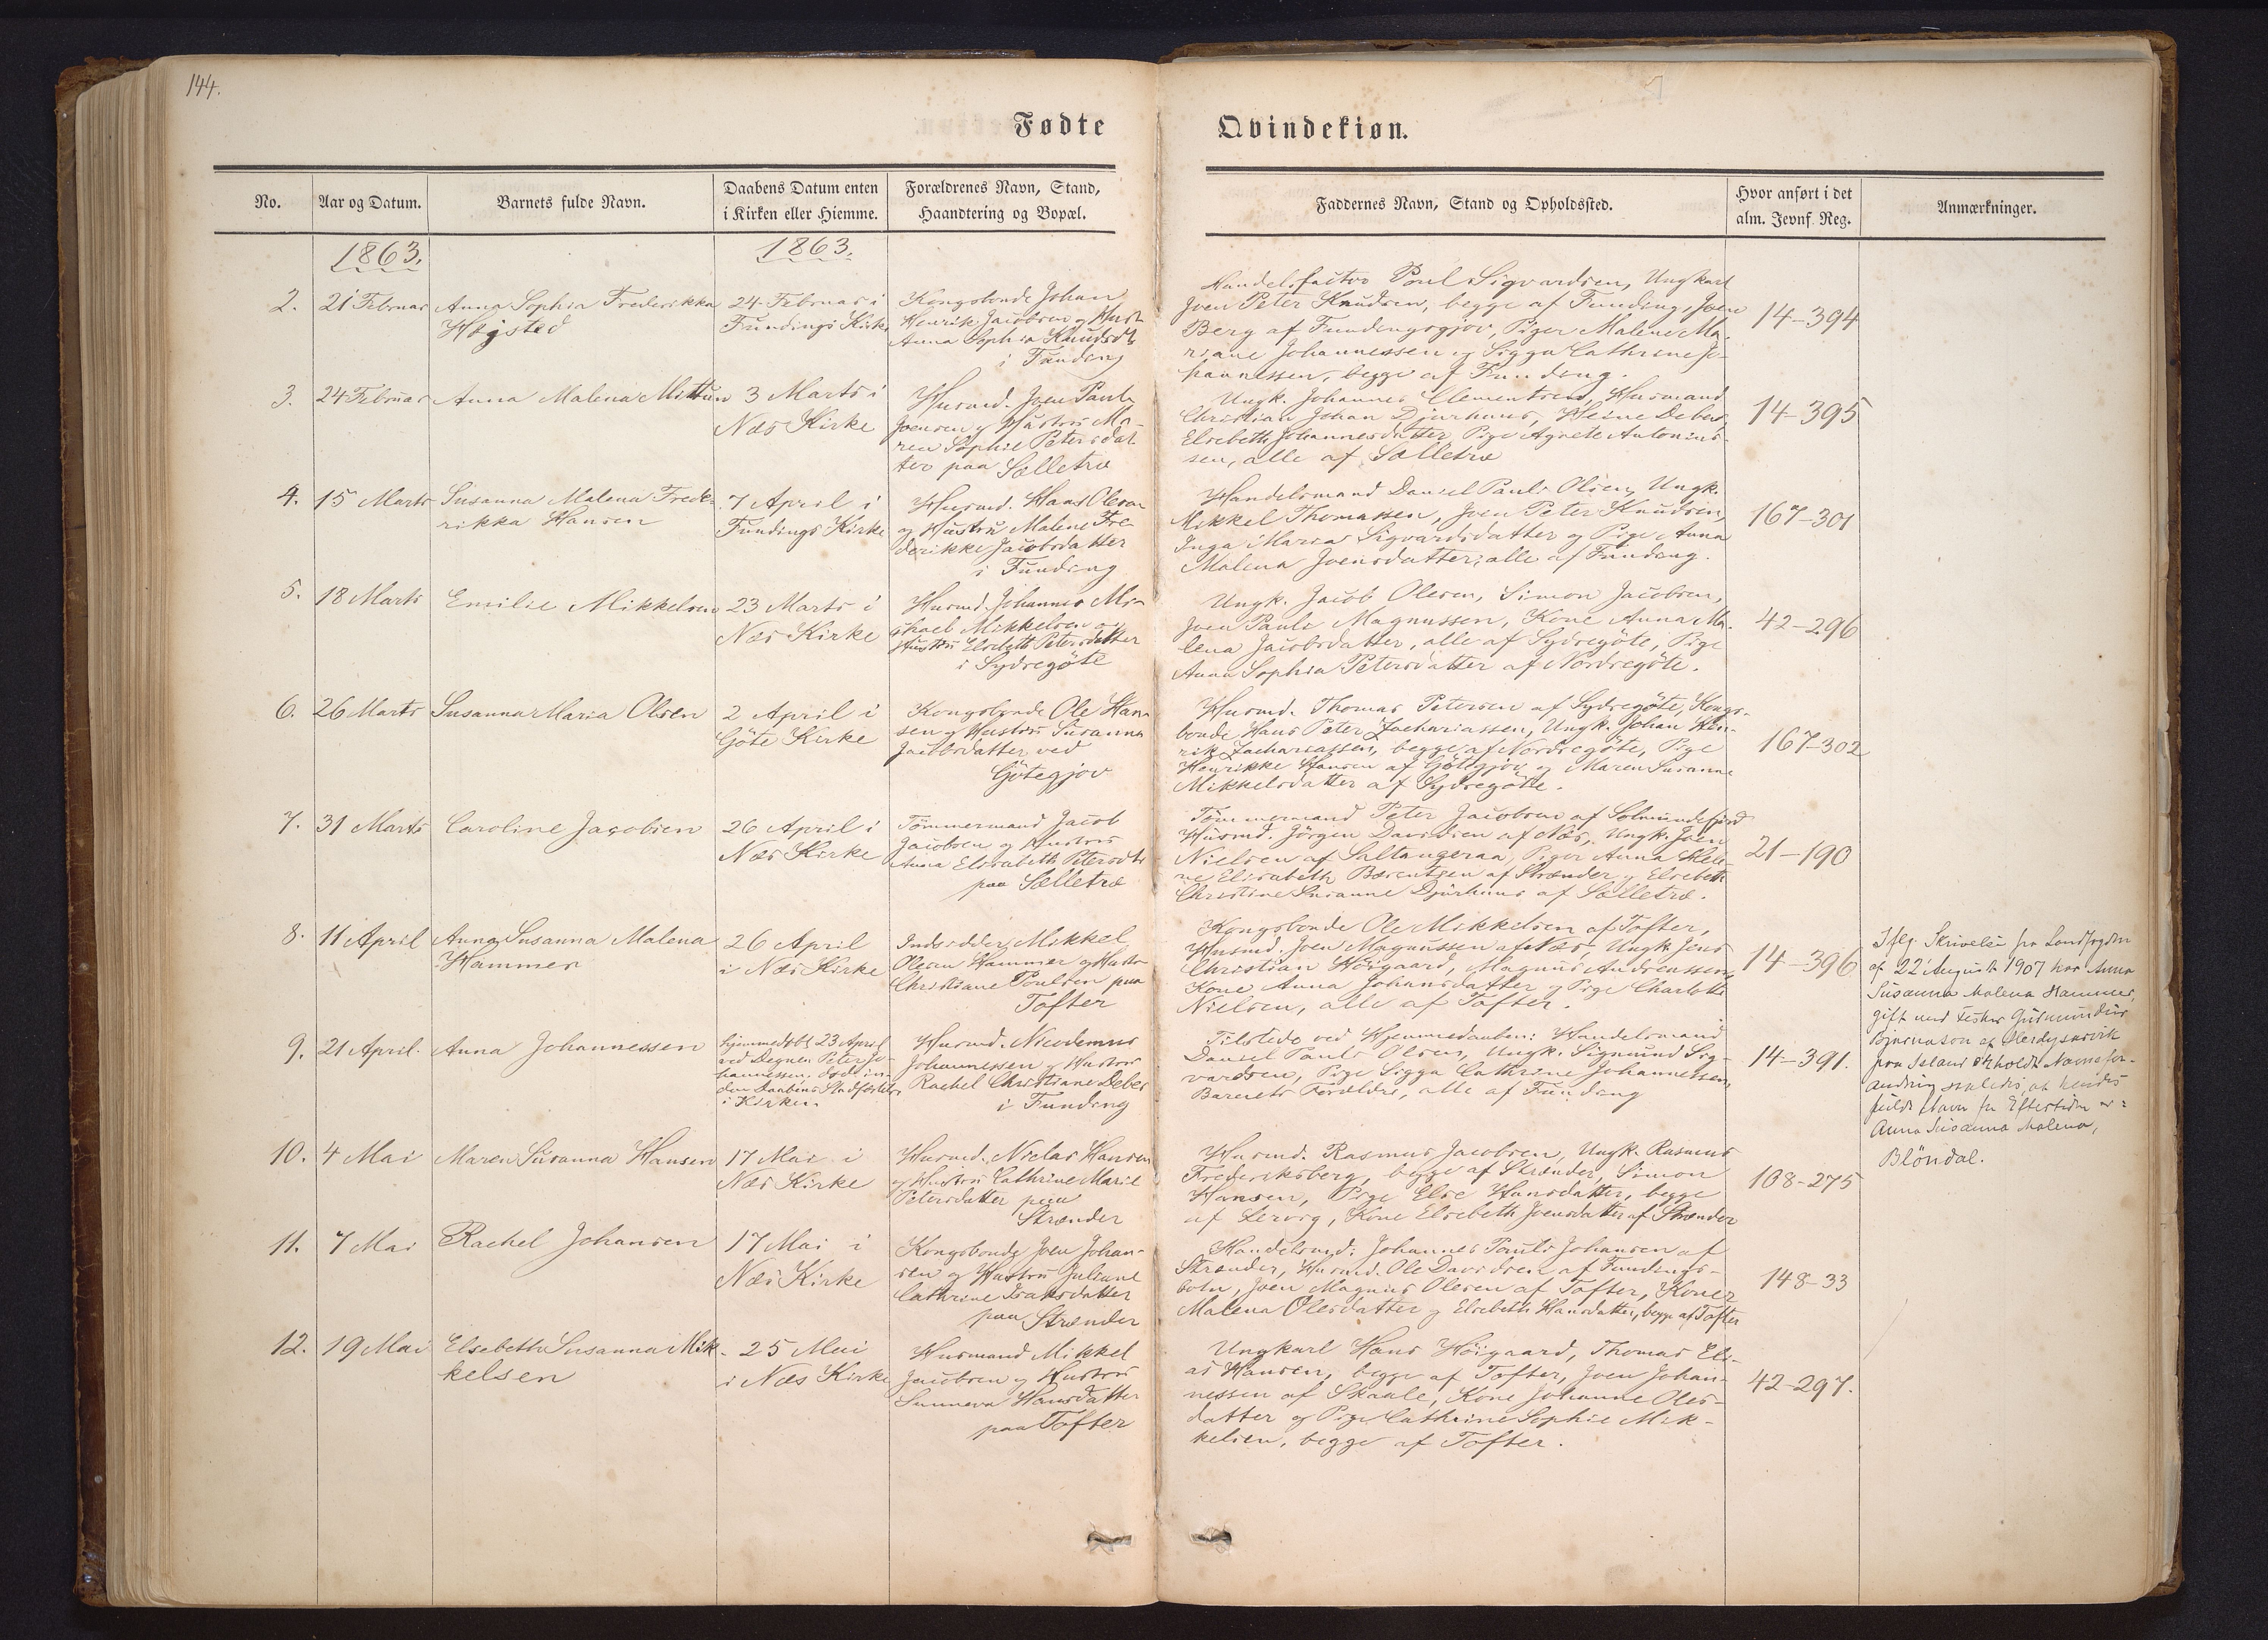 144.
Fødte
Qvindekiøn.
No.
Aar og Datum.
Barnets fulde Navn.
Daabens Datum enten
i Kirken eller Hiemme.
Forældrenes Navn, Stand,
Haandtering og Bopæl.
Faddernes Navn, Stand og Opholdssted.
Hvor anført i det
alm. Jevnf. Reg.
Anmærkninger.
1863.
1863.
2.
21 Februar
Anna Sophia Frederikka
Høgsted
24 Februar i
Fundings Kirke
Kongsbonde Johan
Henrik Jacobsen og Hustr
Anna Sophia Knudsdtr
i Funding
Handelsfactor Poul Sigvardsen, Ungkarl
Joen Peter Knudsen, begge af Funding, Joen
Berg af Fundingsgjov, Piger Malene Ma-
riane Johannessen og Sigga Cathrine Jo-
hannessen, begge af Funding.
14-394
3.
24 Februar
Anna Malena Mittun
3 Marts i
Næs Kirke
Husmd. Joen Pauli
Joensen og Hustru Ma-
ren Sophie Petersdat
ter paa Selletræ
Ungk. Johannes Clementsen, Husmand
Christian Johan Djurhuus, Debes,
Elsebeth Johannesdatter, Pige Agnete Antonius-
sen, alle af Selletræ
14-395
4.
15 Marts
Susanna Malena Frede-
rikka Hansen
7 April i
Fundings Kirke
Husmd. Hans Olesen
og Hustru Malene Fre-
derikke Jacobsdatter
i Funding
Handelsmand Daniel Pauli Olsen, Ungk.
Mikkel Thomassen, Joen Peter Knudsen,
Inga Maria Sigvardsdatter og Pige Anna
Malena Joensdatter, alle af Funding.
167-301
5.
18 Marts
Emilie Mikkelsen
23 Marts i
Næs Kirke
Husmd. Johannes Mi-
chael Mikkelsen og
Hustru Elsebeth Petersdatter
i Sydregöte
Ungk. Jacob Olesen, Simon Jacobsen,
Joen Pauli Magnussen, Kone Anna Ma-
lena Jacobsdatter, alle af Sydregöte, Pige
Anna Sophia Petersdatter af Nordregöte.
42-296
6.
26 Marts
Susanna Maria Olsen
2 April i
Göte Kirke
Kongsbonde Ole Han-
sen og Hustru Susanna
Jacobsdatter ved
Götegjov
Husmd. Thomas Petersen af Sydregöte, Kongs-
bonde Hans Peter Zachariassen, Ungk. Johan Hen-
rik Zachariassen, begge af Nordregöte, Pige
Henrikke Hansen af Götegjov og Maren Susanne
Mikkelsdatter af Sydregöte.
167-302
7.
31 Marts
Caroline Jacobsen
26 April i
Næs Kirke
Tömmermand Jacob
Jacobsen og Hustru
Anna Elisabeth Petersdtr
paa Selletræ
Tömmermand Peter Jacobsen af Solmundefjord
Husmd. Jörgen Davidsen af Næs, Ungk. Joen
Nielsen af Saltangeraa, Piger Anna Hele-
ne Elisabeth Bærentsen af Strænder og Elsebeth
Christine Susanne Djurhuus af Selletræ.
21-190
8.
11 April
Anna Susanna Malena
Hammer
26 April
i Næs Kirke
Indsidder Mikkel
Olesen Hammer og Hustru
Christiane Poulsen paa
Tofter
Kongsbonde Ole Mikkelsen af Tofter,
Husmd. Joen Magnussen af Næs, Ungk. Jens
Christian Höigaard, Magnus Andreassen,
Kone Anna Johansdatter og Pige Charlotte
Nielsen, alle af Tofter.
14-396
Iflg. Skrivelse fra Landfogden
af 22' August 1907 har Anna
Susanna Malena Hammer,
gift med Fisker Gudmundur
Bjarnason af
paa Island erholdt Navnefor-
andring saaledes, at hendes
fulde Navn for Eftertiden er:
Anna Susanna Malena,
Blöndal.
9.
21 April.
Anna Johannessen
hjemmedöbt 23 April
ved Degnen Peter Jo-
hannessen. Död in-
den Daabens Stadfæstelse
i Kirken
Husmd. Nicodemus
Johannessen og Hustru
Rachel Christiane Debes
i Funding
Tilstede ved Hjemmedaaben: Handelsmand
Daniel Pauli Olsen, Ungk. Sigmund Sig-
vardsen, Pige Sigga Cathrine Johannessen,
Barnets Forældre, alle af Funding
14-391.
10.
4 Mai
Maren Susanna Hansen
17 Mai i
Næs Kirke
Husmd. Niclas Hansen
og Hustru Cathrine Marie
Petersdatter paa
Strænder
Husmd. Rasmus Jacobsen, Ungk. Rasmus
Frederiksberg, begge af Strænder, Simon
Hansen, Pige Else Hansdatter, begge
af Lervig, Kone Elsebeth Joensdatter af Strænder
108-275
11.
7 Mai
Rachel Johansen
17 Mai i
Næs Kirke
Kongsbonde Joen Johan-
sen og Hustru Juliane
Cathrine Isaksdatter
paa Strænder
Handelsmd. Johannes Pauli Johansen af
Strænder, Husmd. Ole Davidsen af Fundings-
botn, Joen Magnus Olesen af Tofter, Koner
Malena Olesdatter og Elsebeth Hansdatter, begge af Tofter
148-33
12.
19 Mai
Elsebeth Susanna Mik-
kelsen
25 Mai
i Næs Kirke
Husmand Mikkel
Jacobsen og Hustru
Sunneva Hansdatter
paa Tofter
Ungkarl Hans Höigaard, Thomas Eli-
as Hansen, begge af Tofter, Joen Johan-
nessen af Skaale, Kone Johanne Oles-
datter og Pige Cathrine Sophie Mik-
kelsen, begge af Tofter.
42-297.